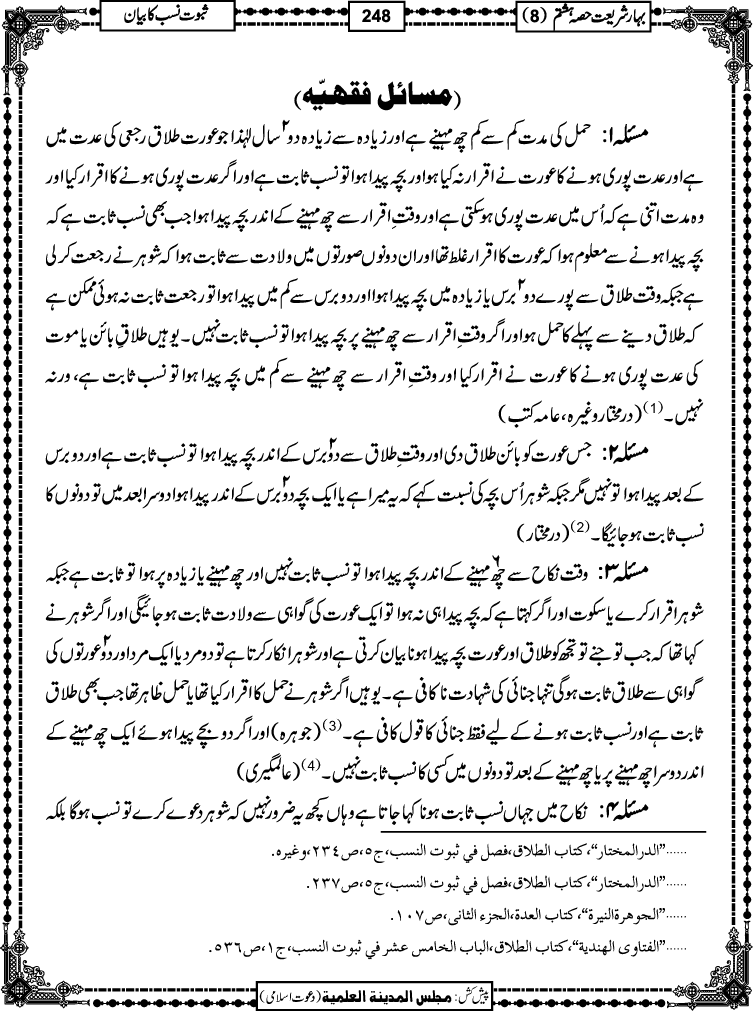 بہار شریعت حصہ ہشتم (8)
248
ثبوت نسب کا بیان
(مسائل فقھیّہ)
مسئلہ ۱: حمل کی مدت کم سے کم چھ مہینے ہے اور زیادہ سے زیادہ دو۲ سال لہٰذا جو عورت طلاق رجعی کی عدت میں
ہے اور عدت پوری ہونے کا عورت نے اقرار نہ کیا ہو اور بچہ پیدا ہوا تو نسب ثابت ہے اور اگر عدت پوری ہونے کا اقرار کیا اور
وہ مدت اتنی ہے کہ اُس میں عدت پوری ہو سکتی ہے اور وقتِ اقرار سے چھ مہینے کے اندر بچہ پیدا ہوا جب بھی نسب ثابت ہے کہ
بچہ پیدا ہونے سے معلوم ہوا کہ عورت کا اقرار غلط تھا اور ان دونوں صورتوں میں ولادت سے ثابت ہوا کہ شوہر نے رجعت کر لی
ہے جبکہ وقت طلاق سے پورے دو۲ برس یا زیادہ میں بچہ پیدا ہوا اور دو برس سے کم میں پیدا ہوا تو رجعت ثابت نہ ہوئی ممکن ہے
کہ طلاق دینے سے پہلے کا حمل ہو اور اگر وقتِ اقرار سے چھ مہینے پر بچہ پیدا ہوا تو نسب ثابت نہیں۔ یوہیں طلاقِ بائن یا موت
کی عدت پوری ہونے کا عورت نے اقرار کیا اور وقتِ اقرار سے چھ مہینے سے کم میں بچہ پیدا ہوا تو نسب ثابت ہے، ورنہ
نہیں۔(1) (درمختار وغیرہ، عامہ کتب)
مسئلہ ۲: جس عورت کو بائن طلاق دی اور وقتِ طلاق سے دو۲ برس کے اندر بچہ پیدا ہوا تو نسب ثابت ہے اور دو برس
کے بعد پیدا ہوا تو نہیں مگر جبکہ شوہر اُس بچہ کی نسبت کہے کہ یہ میرا ہے یا ایک بچہ دو۲ برس کے اندر پیدا ہوا دوسرا بعد میں تو دونوں کا
نسب ثابت ہو جائیگا۔(2) (درمختار)
مسئلہ ۳: وقت نکاح سے چھ۶ مہینے کے اندر بچہ پیدا ہوا تو نسب ثابت نہیں اور چھ مہینے یا زیادہ پر ہوا تو ثابت ہے جبکہ
شوہر اقرار کرے یا سکوت اور اگر کہتا ہے کہ بچہ پیدا ہی نہ ہوا تو ایک عورت کی گواہی سے ولادت ثابت ہو جائیگی اور اگر شوہر نے
کہا تھا کہ جب تو جنے تو تجھ کو طلاق اور عورت بچہ پیدا ہونا بیان کرتی ہے اور شوہر انکار کرتا ہے تو دو مرد یا ایک مرد اور دو۲ عورتوں کی
گواہی سے طلاق ثابت ہوگی تنہا جنائی کی شہادت نا کافی ہے۔ یوہیں اگر شوہر نے حمل کا اقرار کیا تھا یا حمل ظاہر تھا جب بھی طلاق
ثابت ہے اور نسب ثابت ہونے کے لیے فقط جنائی کا قول کافی ہے۔(3) (جوہرہ) اور اگر دو بچے پیدا ہوئے ایک چھ مہینے کے
اندر دوسرا چھ مہینے پر یا چھ مہینے کے بعد تو دونوں میں کسی کا نسب ثابت نہیں۔(4) (عالمگیری)
مسئلہ ۴: نکاح میں جہاں نسب ثابت ہونا کہا جاتا ہے وہاں کچھ یہ ضرور نہیں کہ شوہر دعوے کرے تو نسب ہوگا بلکہ
......"الدرالمختار"، کتاب الطلاق، فصل في ثبوت النسب، ج٥، ص٢٣٤، وغیرہ.
......"الدرالمختار"، کتاب الطلاق، فصل في ثبوت النسب، ج٥، ص٢٣٧.
......"الجوھرۃ النیرۃ"، کتاب العدۃ، الجزء الثانی، ص١٠٧.
......"الفتاوی الھندیۃ"، کتاب الطلاق، الباب الخامس عشر في ثبوت النسب، ج١، ص٥٣٦.
پیش کش: مجلس المدینة العلمیة (دعوت اسلامی)